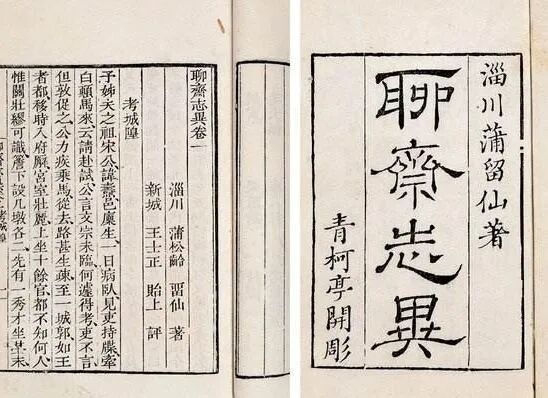 淄川蒲留仙著
聊齋志異
青柯亭開彫
聊齋志異卷一
淄川 蒲松齡 留仙 著
新城 王士正 貽上 評
考城隍
予姊夫之祖宋公諱燾邑廩生一日病臥見吏持牒牽
白顛馬來云請赴試公言文宗未臨何遽得考吏不言
但敦促之公力疾乘馬從去路甚生疎至一城郭如王
者都移時入府廨宮室壯麗上坐十餘官都不知何人
惟關壯繆可識簷下設几墩各二先有一秀才坐其末
考城隍